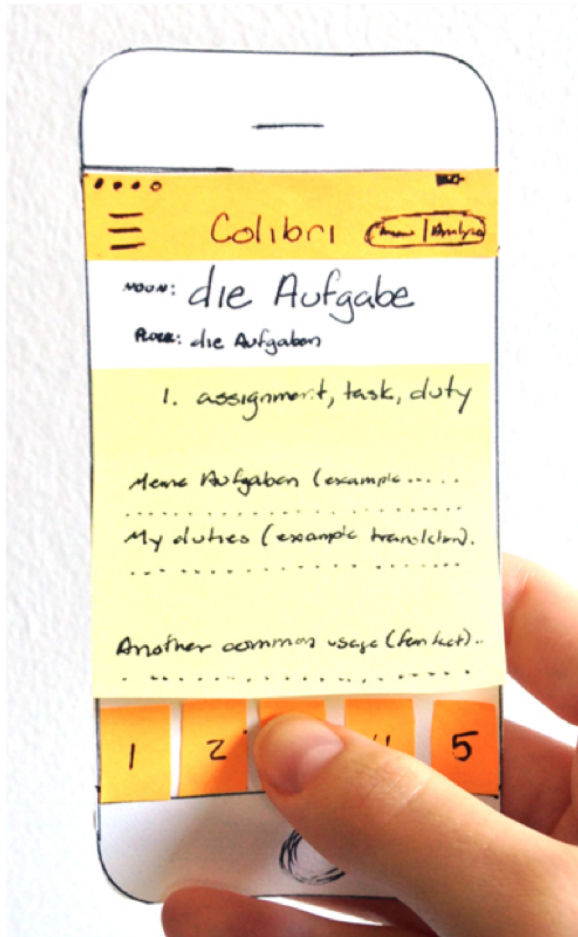 Colibri
NOUN: die Aufgabe
PLURAL: die Aufgaben
1. assignment, task, duty
Meine Aufgaben (example.....
My duties (example translation).
Another common usage (fun fact)..
1 2 4 5